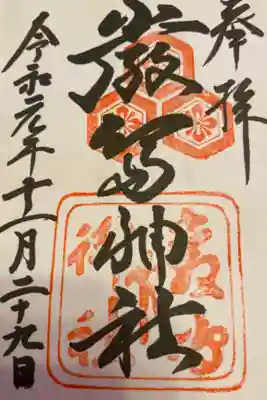 奉拝
厳島神社
令和元年十一月二十九日